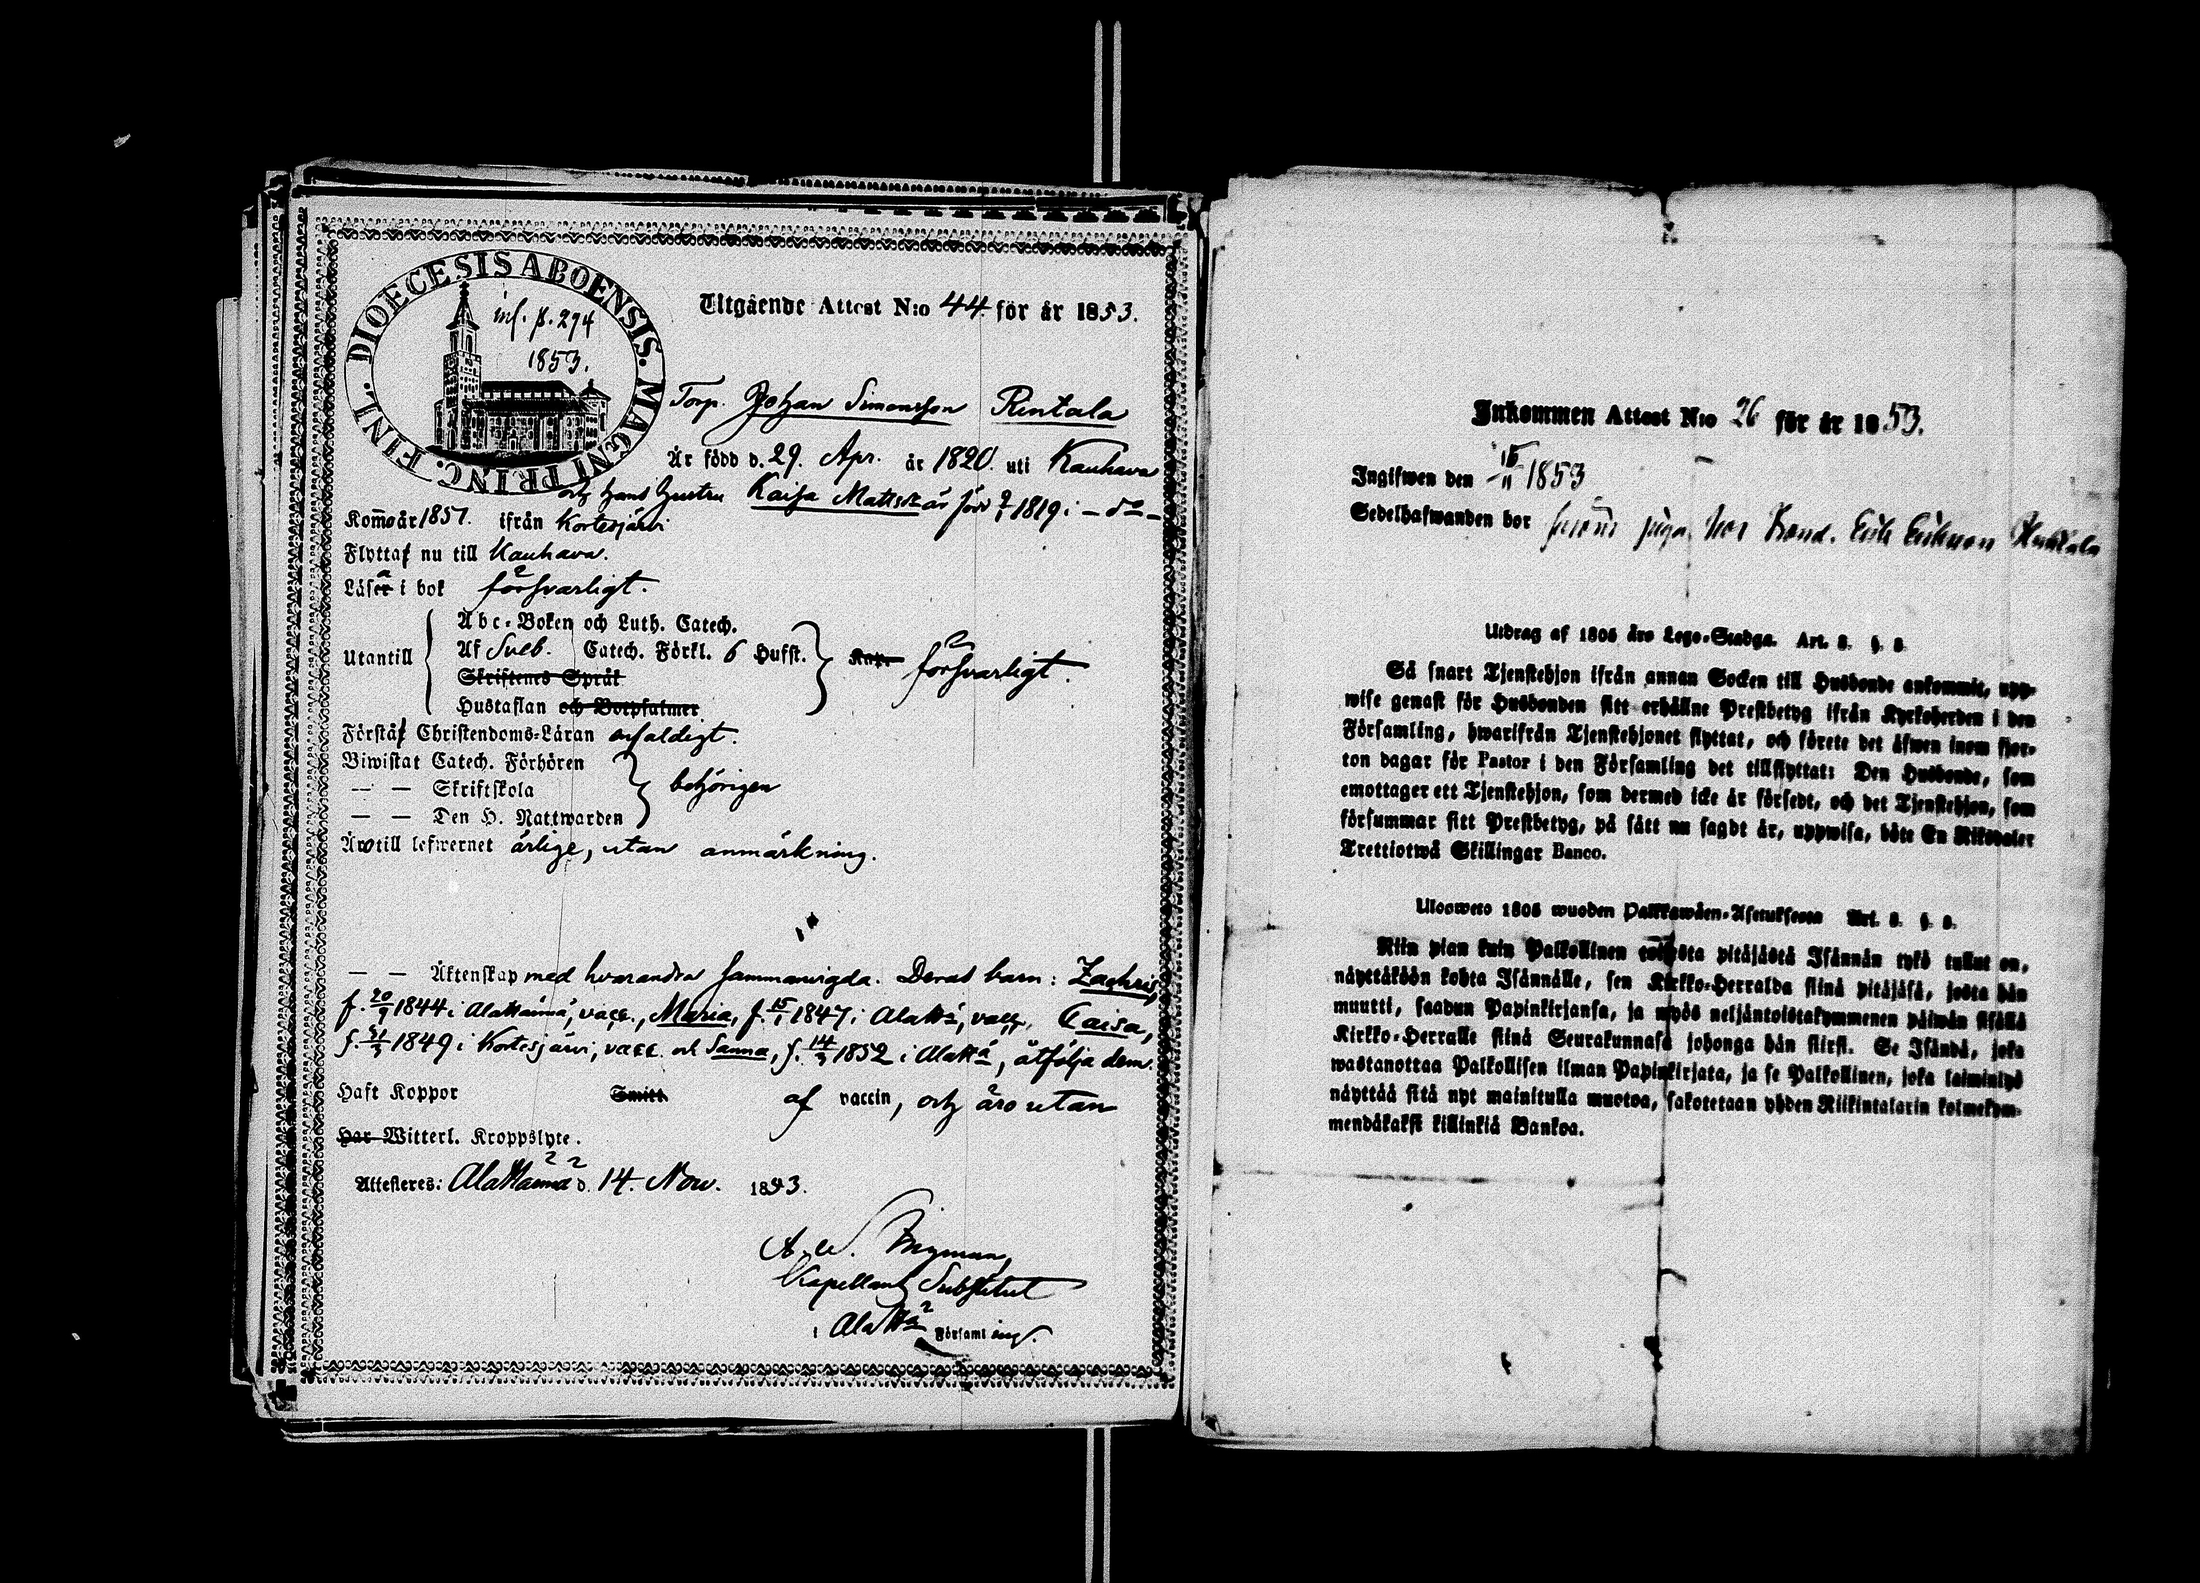 DIOECESIS ABOENSIS. MAGNI PRINC. FINL.
inf. p. 294
1853.
Utgående Attest N:o 44 för år 1853.
Torp. Johan Simonsson Rintala
Är född d. 29. Apr. år 1820. uti Kauhava
och hans hustru Kaisa Mattsdr är född 1819 i
Kom år 1851. ifrån Kortesjärvi
Flytta nu till Kauhava.
Läsa i bok försvarligt.
Abc-Boken och Luth. Catech.
Utantill Af Sveb. Catech. Förkl. 6 Hufst. försvarligt.
Skriftenes Språk
Hustaflan och Botpsalmer
Förstå Christendoms-Läran enfaldigt.
Biwistat Catech. Förhören
— — Skriftskola behörigen
— — Den H. Nattwarden
Äro till lefwernet ärlige, utan anmärkning.
— — Äktenskap med hvarandra sammanvigda. Deras barn: Zachris,
f. 1844 i Alahärmä, vacc., Maria, f. 15/1 1847 i Alahä, vacc. Caisa,
f. 1849 i Kortesjärvi, vacc. och Sanna, f. 14/3 1852 i Alahä, åtfölja dem.
Haft Koppor Smitt af vaccin, och äro utan
Har Witterl. Kroppslyte.
Attesteres: Alahärmä d. 14. Nov. 1853.
Kapellans Substitut
i Alahä Församling.
Inkommen Attest N:o 26 för år 1853.
Ingifwen den 1853
Sedelhafwanden bor hos Bond. Erik Eriksson
Utdrag af 1805 års Lego-Stadga. Art. 8. §. 8.
Så snart Tjenstehjon ifrån annan Socken till Husbonde ankommit, upp-
wise genast för Husbonden sitt erhållne Prestbetyg ifrån Kyrkoherden i den
Församling, hwarifrån Tjenstehjonet flyttat, och förete det äfwen inom fjor-
ton dagar för Pastor i den Församling det tillflyttat: Den Husbonde, som
emottager ett Tjenstehjon, som dermed icke är försedt, och det Tjenstehjon, som
försummar sitt Prestbetyg, på sätt nu sagdt är, uppwisa, böte En Riksdaler
Trettiotwå Skillingar Banco.
Ulosweto 1805 wuoden Palkkawäen-Asetuksesta Art. 8. §. 8.
Niin pian kuin Palkollinen toisesta pitäjästä Isännän tykö tullut on,
näyttäköön kohta Isännälle, sen Kirkko-Herralda siinä pitäjäsä, josta hän
muutti, saadun Papinkirjansa, ja myös neljäntoistakymmenen päiwän sisällä
Kirkko-Herralle siinä Seurakunnasa johonga hän siirsi. Se Isändä, joka
wastanottaa Palkollisen ilman Papinkirjata, ja se Palkollinen, joka laiminlyö
näyttää sitä nyt mainitulla muotoa, sakotetaan yhden Riikintalarin kolmekym-
mendäkaksi killinkiä Bankoa.